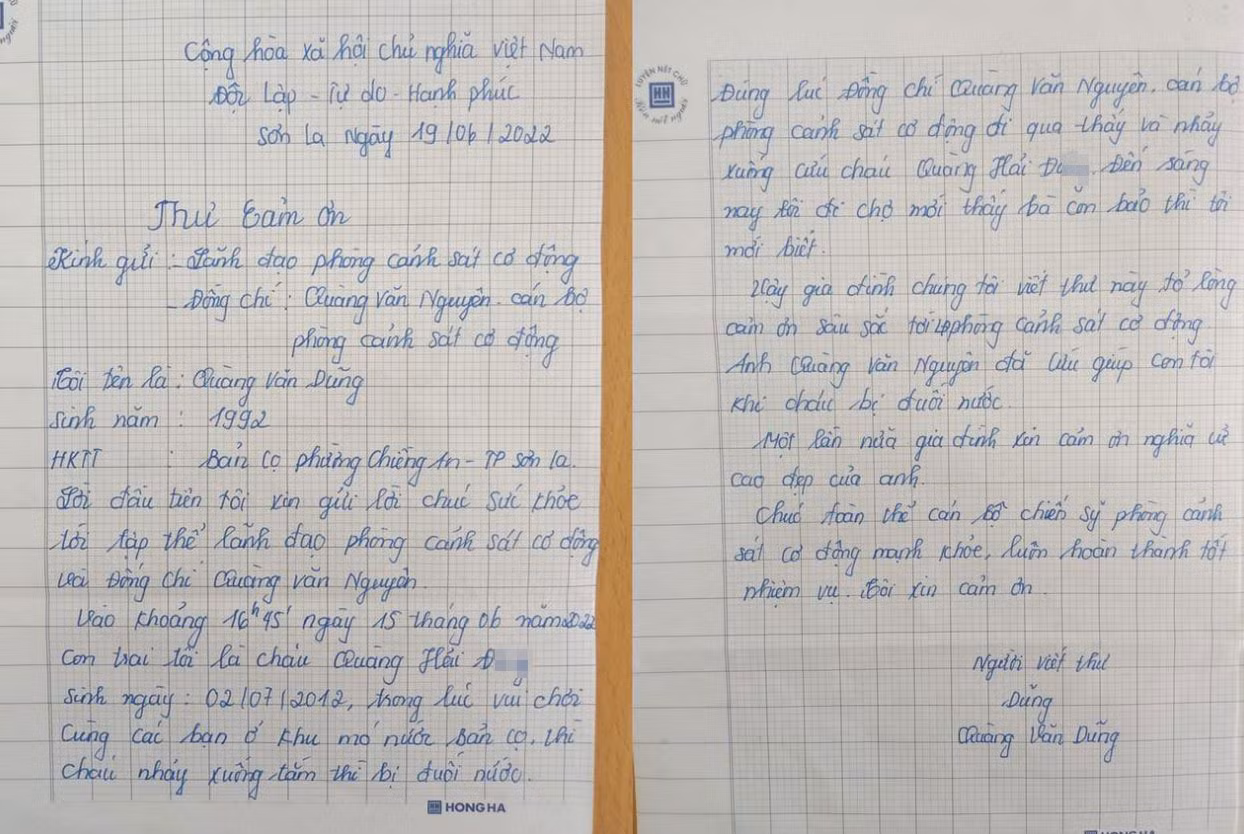 Cộng hòa xã hội chủ nghĩa việt Nam
Độc Lập - Tự do - Hạnh phúc
Sơn la Ngày 19/06/2022
Thư Cảm ơn
Kính gửi : - Lãnh đạo phòng cảnh sát cơ động
- Đồng chí : Quàng Văn Nguyên. cán bộ
phòng cảnh sát cơ động
Tôi tên là : Quàng Văn Dũng
Sinh năm : 1992
HKTT : Bản cọ phường Chiềng An - TP Sơn la.
Lời đầu tiên tôi xin gửi lời chúc sức khỏe
tới tập thể lãnh đạo phòng cảnh sát cơ động
và Đồng chí Quàng Văn Nguyên.
Vào khoảng 16h45' ngày 15 tháng 06 năm 2022
Con trai tôi là cháu Quàng Hải Đ
Sinh ngày : 02/07/2012, trong lúc vui chơi
Cùng các bạn ở khu mó nước Bản cọ, thì
cháu nhảy xuống tắm thì bị đuối nước.
HONG HA
LUYỆN NÉT CHỮ
HH
Rèn nết người
Đúng lúc Đồng chí Quàng Văn Nguyên, cán bộ
phòng cảnh sát cơ động đi qua thấy và nhảy
xuống cứu cháu Quàng Hải Đ. Đến sáng
nay tôi đi chợ mới thấy bà con bảo thì tôi
mới biết.
Vậy gia đình chúng tôi viết thư này tỏ lòng
cảm ơn sâu sắc tới phòng cảnh sát cơ động.
Anh Quàng Văn Nguyên đã cứu giúp con tôi
khi cháu bị đuối nước.
Một lần nữa gia đình xin cảm ơn nghĩa cử
cao đẹp của anh.
Chúc toàn thể cán bộ chiến sỹ phòng cảnh
sát cơ động mạnh khỏe, luôn hoàn thành tốt
nhiệm vụ. Tôi xin cảm ơn.
Người viết thư
Dũng
Quàng Văn Dũng
HONG HA